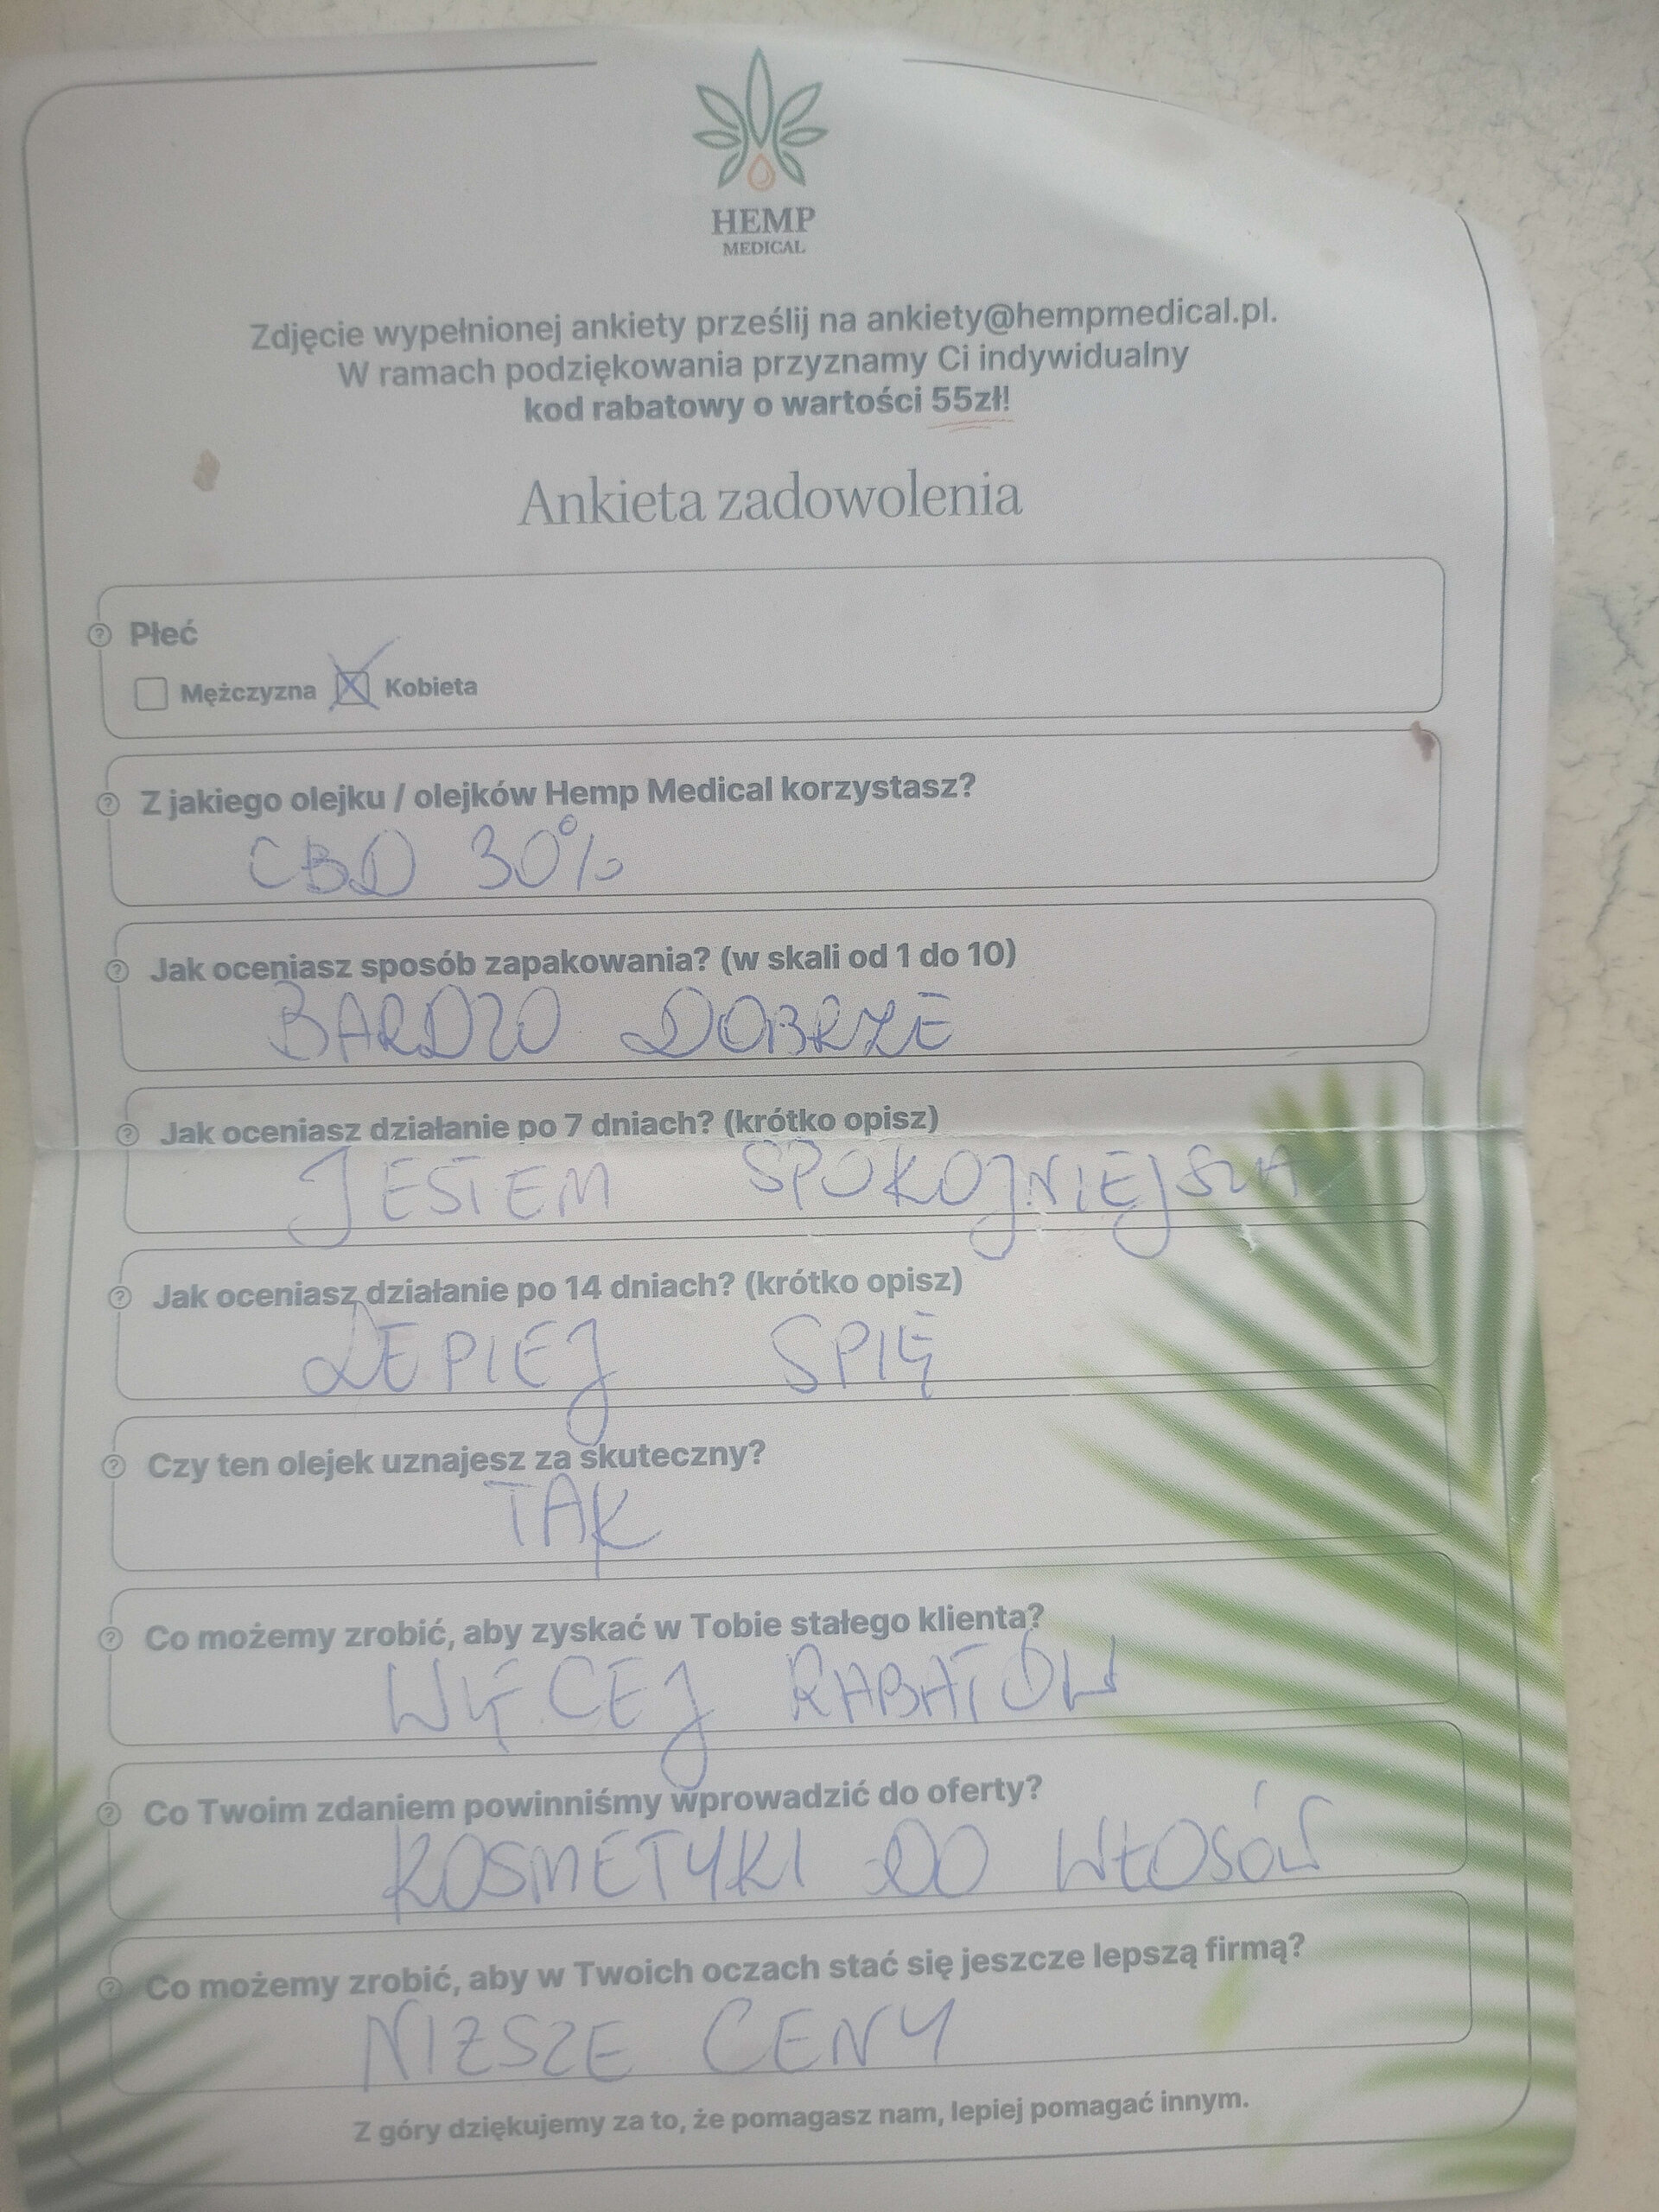 HEMP
MEDICAL
Zdjęcie wypełnionej ankiety prześlij na ankiety@hempmedical.pl.
W ramach podziękowania przyznamy Ci indywidualny
kod rabatowy o wartości 55zł!
Ankieta zadowolenia
Płeć
Mężczyzna Kobieta
Z jakiego olejku / olejków Hemp Medical korzystasz?
CBD 30%
Jak oceniasz sposób zapakowania? (w skali od 1 do 10)
BARDZO DOBRZE
Jak oceniasz działanie po 7 dniach? (krótko opisz)
JESTEM SPOKOJNIEJSZA
Jak oceniasz działanie po 14 dniach? (krótko opisz)
LEPIEJ SPIĘ
Czy ten olejek uznajesz za skuteczny?
TAK
Co możemy zrobić, aby zyskać w Tobie stałego klienta?
WIĘCEJ RABATÓW
Co Twoim zdaniem powinniśmy wprowadzić do oferty?
KOSMETYKI DO WŁOSÓW
Co możemy zrobić, aby w Twoich oczach stać się jeszcze lepszą firmą?
NIZSZE CENY
Z góry dziękujemy za to, że pomagasz nam, lepiej pomagać innym.